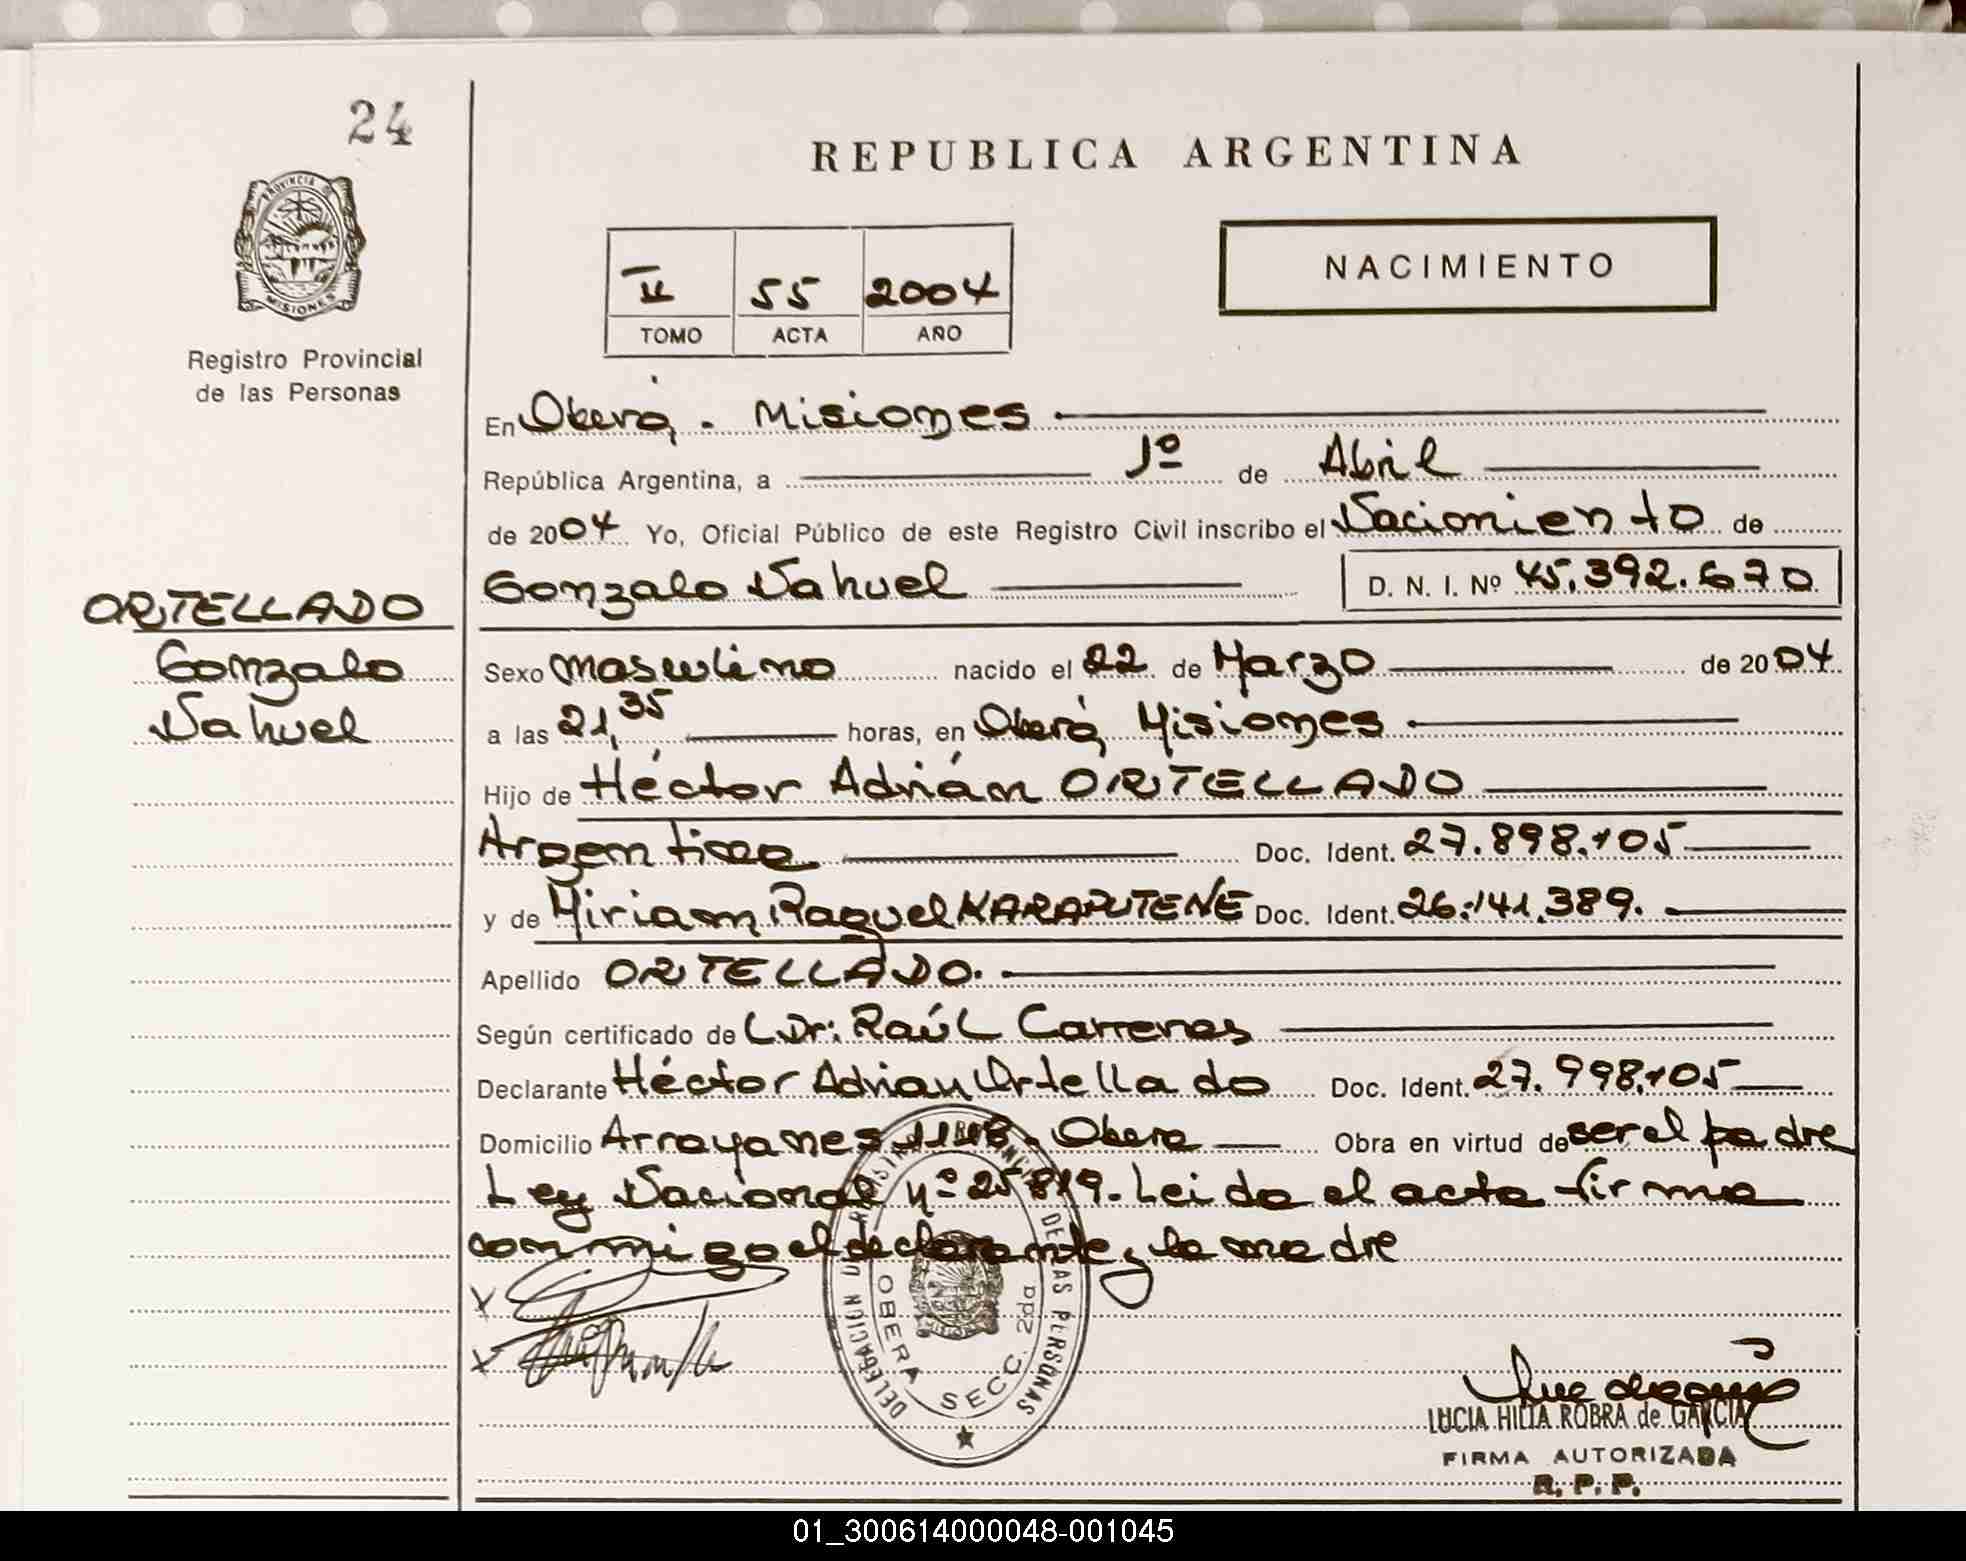 24
REPUBLICA ARGENTINA
PROVINCIA DE MISIONES
Registro Provincial
de las Personas
II 55 2004
TOMO ACTA AÑO
NACIMIENTO
En Oberá - Misiones
República Argentina, a 1º de Abril
de 2004 Yo, Oficial Público de este Registro Civil inscribo el Nacimiento de
ORTELLADO
Gonzalo
Nahuel
Gonzalo Nahuel D. N. I. Nº 45.392.670
Sexo masculino nacido el 22 de Marzo de 2004
a las 21,35 horas, en Oberá, Misiones
Hijo de Héctor Adrián ORTELLADO
Argentino Doc. Ident. 27.898.105
y de Miriam Raquel KARAPUTENE Doc. Ident. 26.141.389.
Apellido ORTELLADO.
Según certificado de Dr: Raúl Carreras
Declarante Héctor Adrian Ortellado Doc. Ident. 27.998.105
Domicilio Arrayanes Obera Obra en virtud de ser el padre
Ley Nacional nº 25819. Leida el acta firma
conmigo el declarante y la madre
DELEGACION DE LAS PERSONAS
OBERA SECC. 2da
LUCIA HILIA ROBRA de GARCIA
FIRMA AUTORIZADA
R. P. P.
01_300614000048-001045